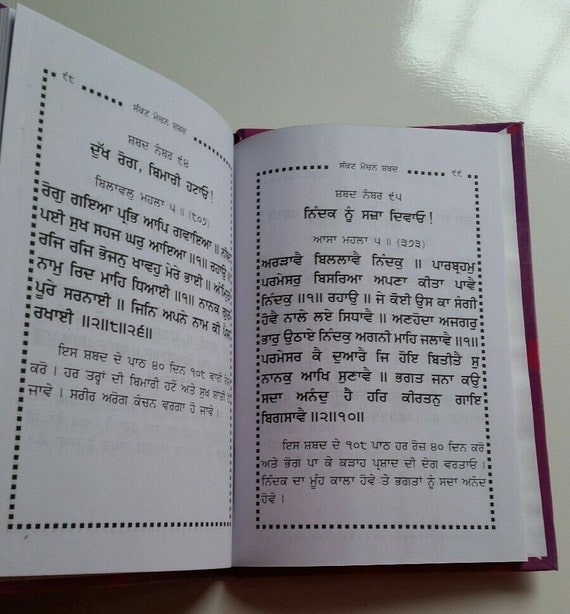 ੯੮
ਸੰਕਟ ਮੋਚਨ ਸ਼ਬਦ
ਸ਼ਬਦ ਨੰਬਰ ੯੪
ਦੁੱਖ ਰੋਗ, ਬਿਮਾਰੀ ਹਟਾਓ!
ਬਿਲਾਵਲੁ ਮਹਲਾ ੫ ॥ (੮੦੭)
ਰੋਗੁ ਗਇਆ ਪ੍ਰਭਿ ਆਪਿ ਗਵਾਇਆ ॥
ਪਈ ਸੁਖ ਸਹਜ ਘਰੁ ਆਇਆ ॥੧॥ ਰਹਾਉ ॥
ਰਜਿ ਰਜਿ ਭੋਜਨੁ ਖਾਵਹੁ ਮੇਰੇ ਭਾਈ ॥
ਨਾਮੁ ਰਿਦ ਮਾਹਿ ਧਿਆਈ ॥੧॥ ਨਾਨਕ ਗੁਰ
ਪੂਰੇ ਸਰਨਾਈ ॥ ਜਿਨਿ ਅਪਨੇ ਨਾਮ ਕੀ ਪੈਜ
ਰਖਾਈ ॥੨॥੮॥੨੬॥
ਇਸ ਸ਼ਬਦ ਦੇ ਪਾਠ ੪੦ ਦਿਨ ੧੦੮ ਵਾਰੀ
ਕਰੋ । ਹਰ ਤਰ੍ਹਾਂ ਦੀ ਬਿਮਾਰੀ ਹਟੇ ਅਤੇ ਸੁਖ
ਜਾਵੇ । ਸਰੀਰ ਅਰੋਗ ਕੰਚਨ ਵਰਗਾ ਹੋ ਜਾਵੇ ।
ਸੰਕਟ ਮੋਚਨ ਸ਼ਬਦ
੯੯
ਸ਼ਬਦ ਨੰਬਰ ੯੫
ਨਿੰਦਕ ਨੂੰ ਸਜ਼ਾ ਦਿਵਾਓ!
ਆਸਾ ਮਹਲਾ ੫ ॥ (੩੭੩)
ਅਰੜਾਵੈ ਬਿਲਲਾਵੈ ਨਿੰਦਕੁ ॥ ਪਾਰਬ੍ਰਹਮੁ
ਪਰਮੇਸਰੁ ਬਿਸਰਿਆ ਅਪਣਾ ਕੀਤਾ ਪਾਵੈ
ਨਿੰਦਕੁ ॥੧॥ ਰਹਾਉ ॥ ਜੇ ਕੋਈ ਉਸ ਕਾ ਸੰਗੀ
ਹੋਵੈ ਨਾਲੇ ਲਏ ਸਿਧਾਵੈ ॥ ਅਣਹੋਦਾ ਅਜਗਰੁ
ਭਾਰੁ ਉਠਾਏ ਨਿੰਦਕੁ ਅਗਨੀ ਮਾਹਿ ਜਲਾਵੈ ॥੧॥
ਪਰਮੇਸਰ ਕੈ ਦੁਆਰੈ ਜਿ ਹੋਇ ਬਿਤੀਤੈ ਸੁ
ਨਾਨਕੁ ਆਖਿ ਸੁਣਾਵੈ ॥ ਭਗਤ ਜਨਾ ਕਉ
ਸਦਾ ਅਨੰਦੁ ਹੈ ਹਰਿ ਕੀਰਤਨੁ ਗਾਇ
ਬਿਗਸਾਵੈ ॥੨॥੧੦॥
ਇਸ ਸ਼ਬਦ ਦੇ ੧੦੮ ਪਾਠ ਹਰ ਰੋਜ਼ ੪੦ ਦਿਨ ਕਰੋ
ਅਤੇ ਭੋਗ ਪਾ ਕੇ ਕੜਾਹ ਪ੍ਰਸ਼ਾਦ ਦੀ ਦੇਗ ਵਰਤਾਓ ।
ਨਿੰਦਕ ਦਾ ਮੂੰਹ ਕਾਲਾ ਹੋਵੇ ਤੇ ਭਗਤਾਂ ਨੂੰ ਸਦਾ ਅਨੰਦ
ਹੋਵੇ ।